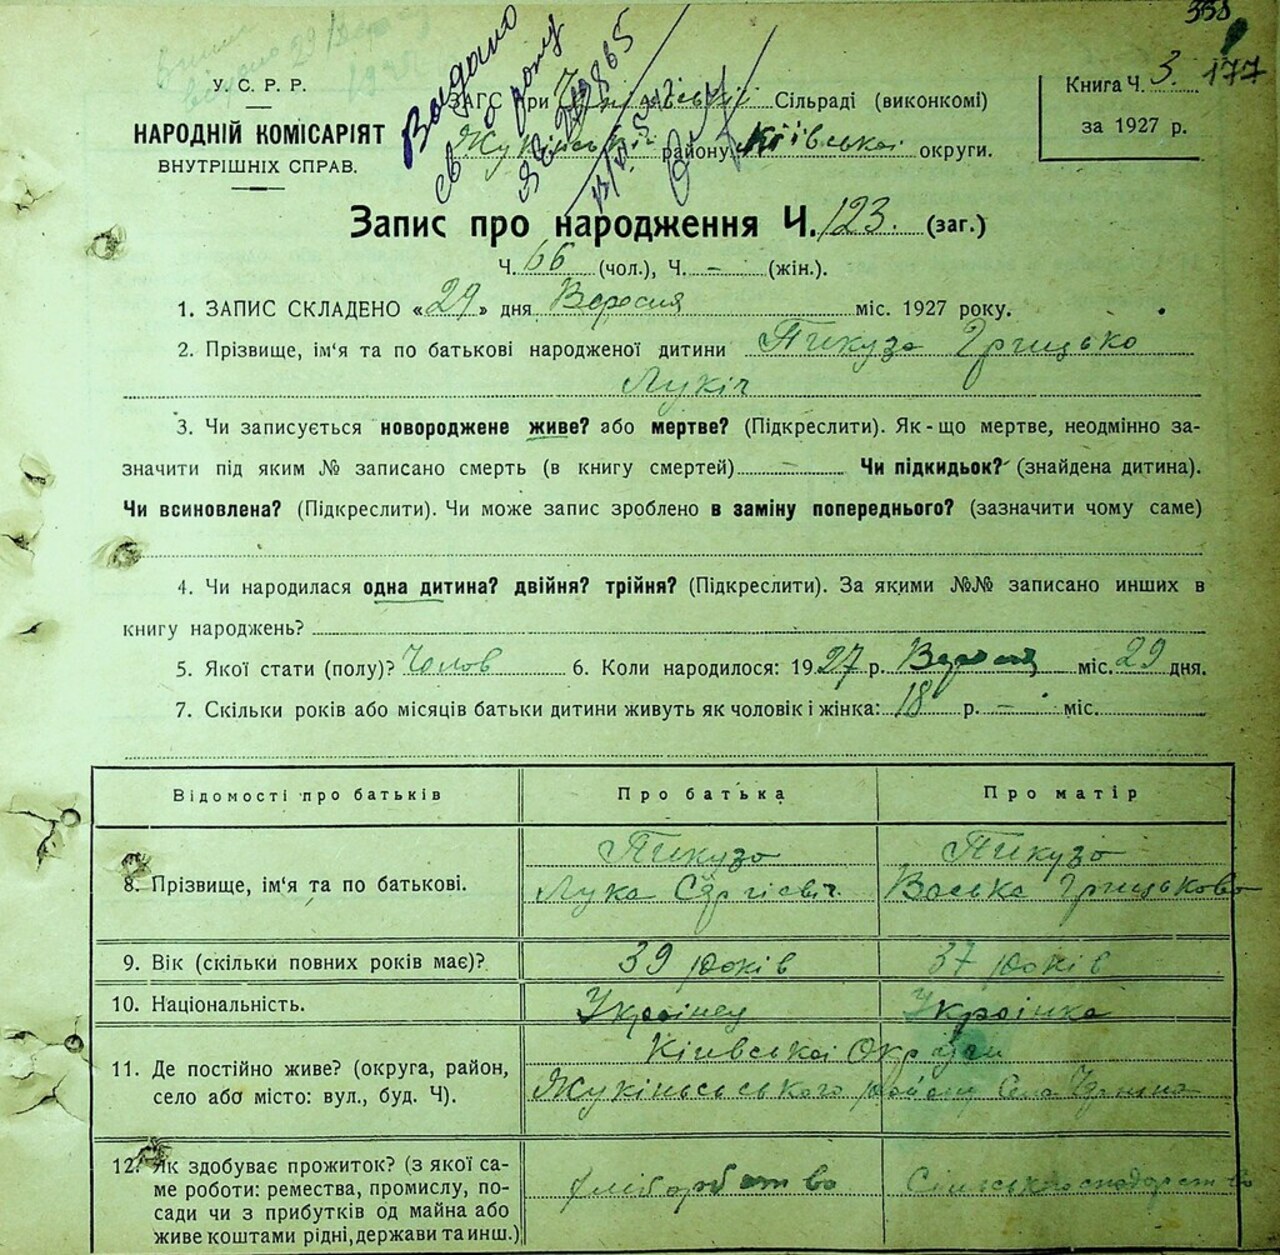 338
177
У. С. Р. Р.
НАРОДНІЙ КОМІСАРІЯТ
ВНУТРІШНІХ СПРАВ.
Видано
св. о рожд
ЗАГС при Сільраді (виконкомі)
Жукінській району Київської округи.
Книга Ч. 3.
за 1927 р.
Запис про народження Ч. 123. (заг.)
Ч. 66 (чол.), Ч. – (жін.).
1. ЗАПИС СКЛАДЕНО «29» дня Вересня міс. 1927 року.
2. Прізвище, ім'я та по батькові народженої дитини Пикуза Грицько
Лукіч
3. Чи записується новороджене живе? або мертве? (Підкреслити). Як-що мертве, неодмінно за-
значити під яким № записано смерть (в книгу смертей) – Чи підкидьок? (знайдена дитина).
Чи всиновлена? (Підкреслити). Чи може запис зроблено в заміну попереднього? (зазначити чому саме)
4. Чи народилася одна дитина? двійня? трійня? (Підкреслити). За якими №№ записано инших в
книгу народжень?
5. Якої стати (полу)? Чолов 6. Коли народилося: 1927 р. Вересня міс. 29 дня.
7. Скільки років або місяців батьки дитини живуть як чоловік і жінка: 18 р. – міс.
Відомості про батьків Про батька Про матір
8. Прізвище, ім'я та по батькові.
Пикуза
Лука Сергієвіч
Пикуза
Васька Грицькова
9. Вік (скільки повних років має)? 39 років 37 років
10. Національність. Українец Українка
11. Де постійно живе? (округа, район,
село або місто: вул., буд. Ч).
Київської Округи
Жукінського району Село
12. Як здобуває прожиток? (з якої са-
ме роботи: ремества, промислу, по-
сади чи з прибутків од майна або
живе коштами рідні, держави та инш.)
хліборобство
Сільське господарство